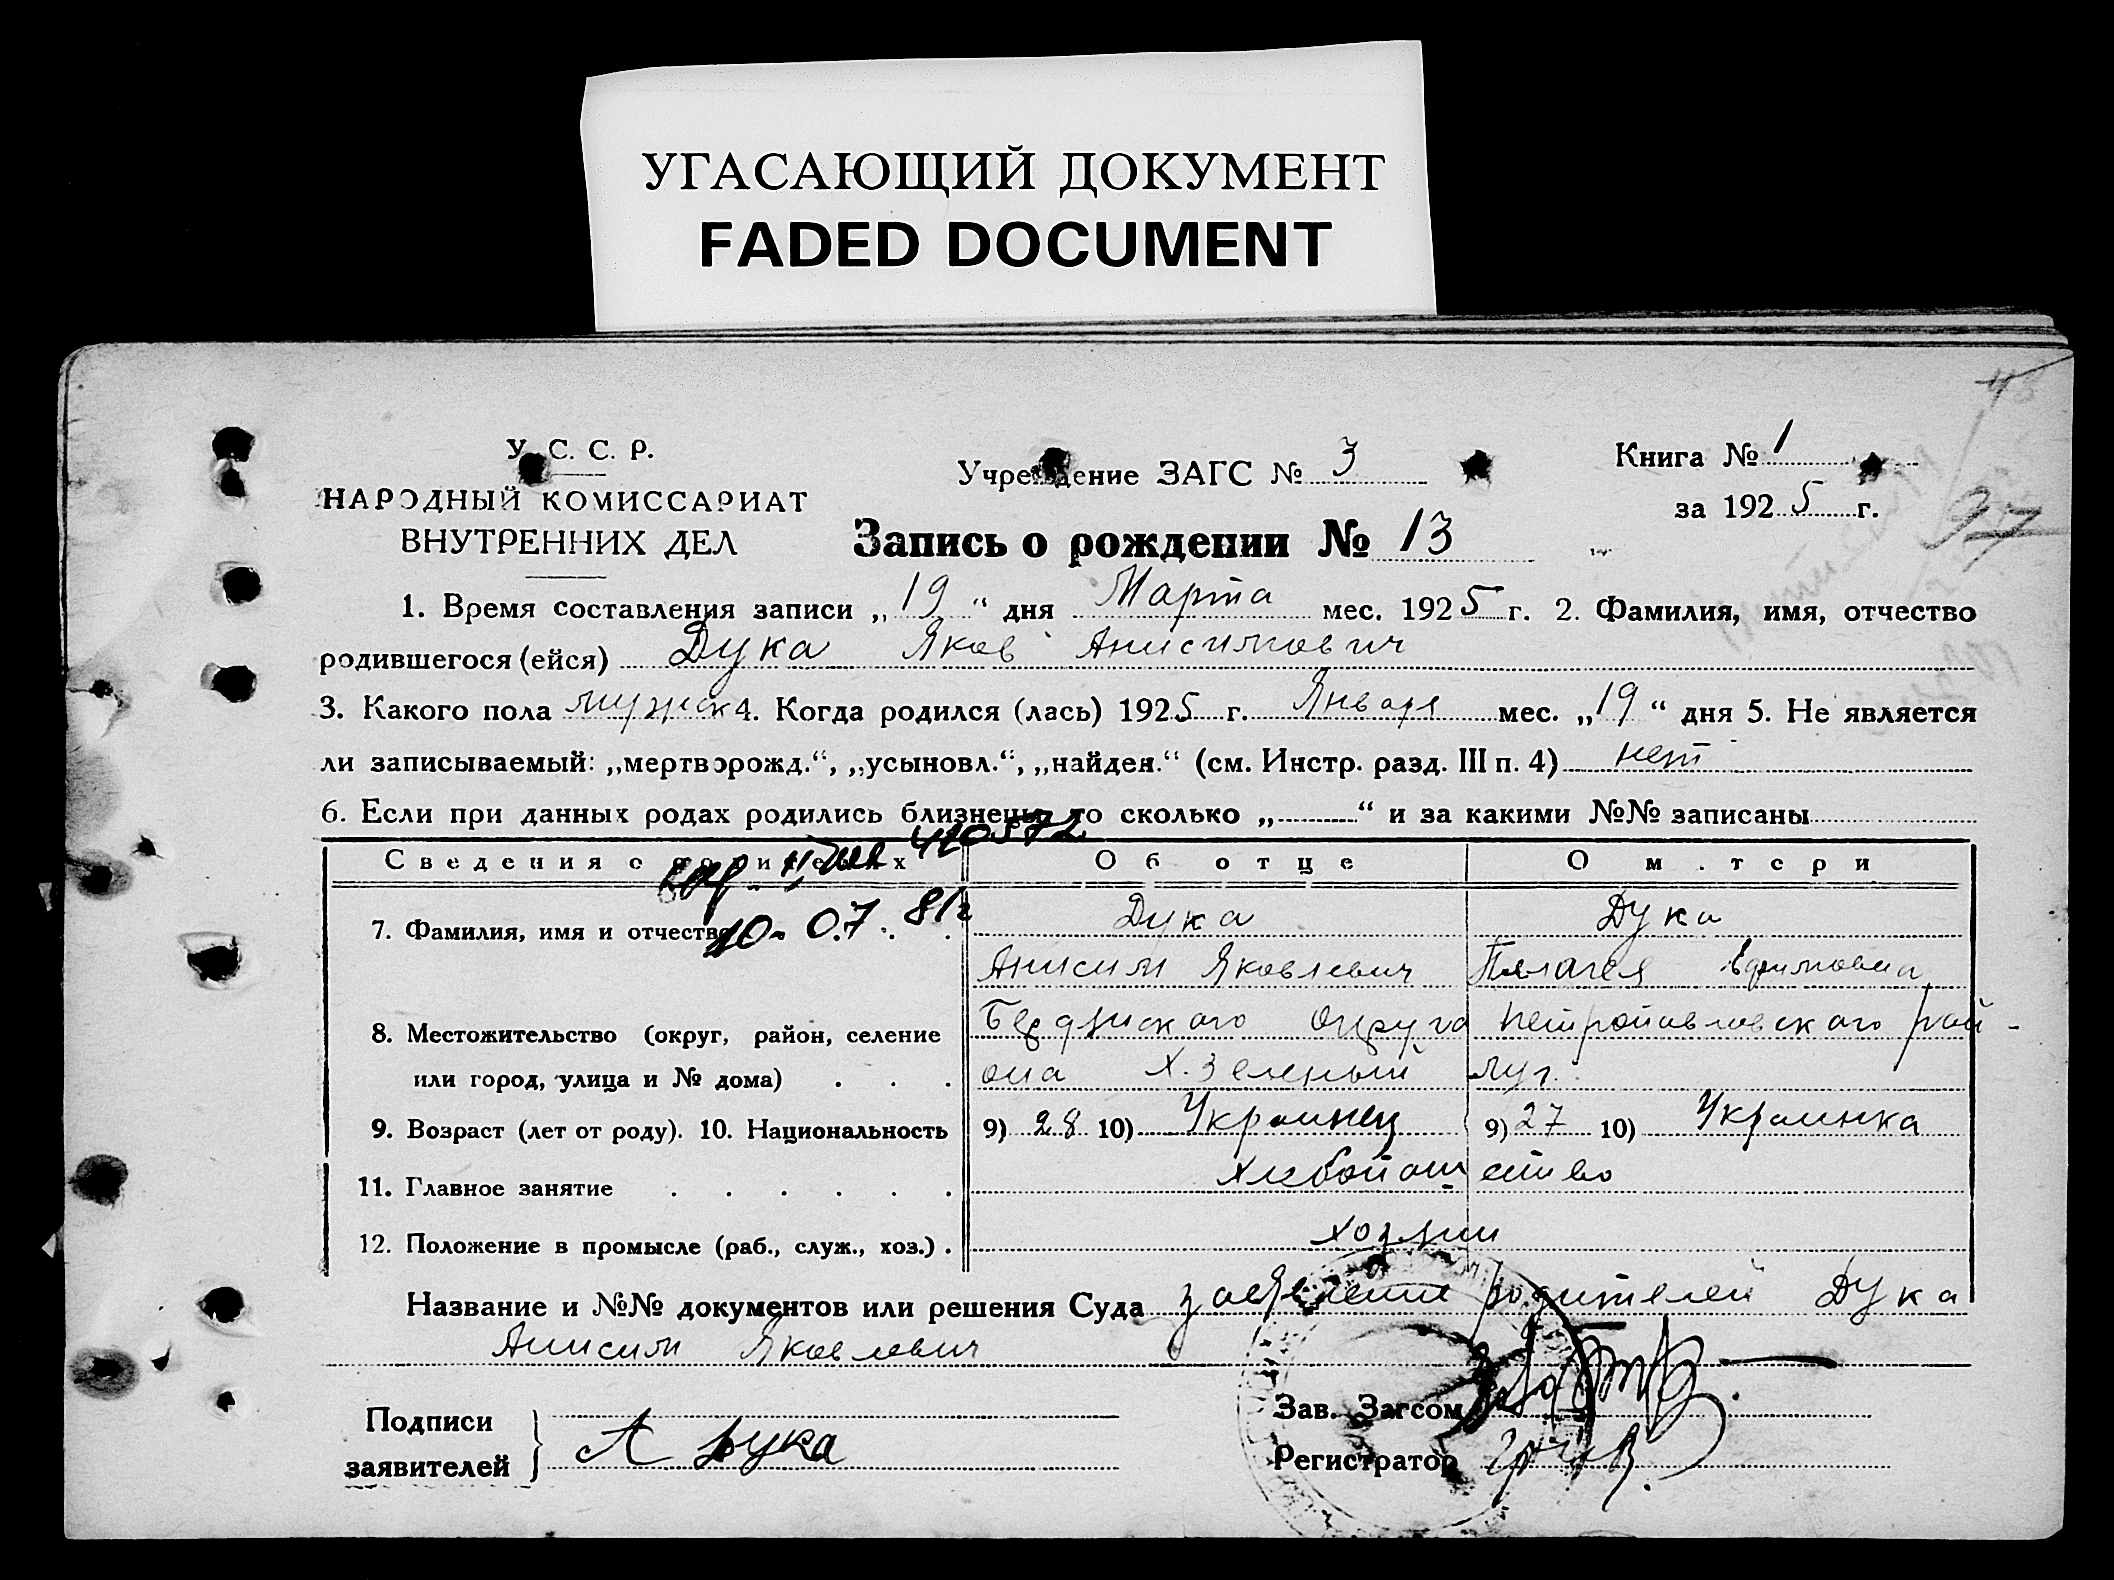 УГАСАЮЩИЙ ДОКУМЕНТ
FADED DOCUMENT
У. С. С. Р.
НАРОДНЫЙ КОМИССАРИАТ
ВНУТРЕННИХ ДЕЛ
Учреждение ЗАГС № 3
Книга № 1
за 1925 г.
97
Запись о рождении № 13
1. Время составления записи „19“ дня Марта мес. 1925 г. 2. Фамилия, имя, отчество
родившегося (ейся) Дука Яков Анисимович
3. Какого пола мужск 4. Когда родился (лась) 1925 г. Января мес. „19“ дня 5. Не является
ли записываемый: „мертворожд.“, „усыновл.“, „найден.“ (см. Инстр. разд. III п. 4) нет
6. Если при данных родах родились близнецы, то сколько „ “ и за какими №№ записаны
410572
Сведения о родителях Об отце О матери
10-07.81г
7. Фамилия, имя и отчество Дука Дука
Анисим Яковлевич Пелагея Ефимовна
8. Местожительство (округ, район, селение Бердянского округа Петропавловского рай-
или город, улица и № дома) она х. Зеленый луг.
9. Возраст (лет от роду). 10. Национальность 9) 28 10) Украинец 9) 27 10) Украинка
11. Главное занятие хлебопашество
12. Положение в промысле (раб., служ., хоз.) хозяин
Название и №№ документов или решения Суда заявление родителей Дука
Анисим Яковлевич
Подписи
заявителей А Дука
Зав. Загсом
Регистратор